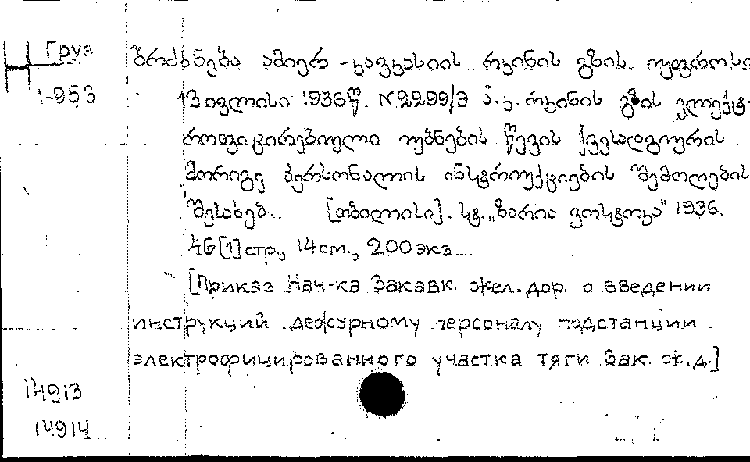 Груз
Н
1-953
ბრძანება ამიერ-კავკასიის რკინის გზის უფროსის
13 ივლისი 1936წ. N2299/Э ა.კ. რკინის გზის ელექტ-
როფიცირებიული უბნების წევის ქვესადგიურის
მორიგე პერსონალის ინსტრიუქციების შემოღების
შესახებ.. [თბილისი]. სტ. „ზარია ვოსტოკა" 1936.
46[1] стр., 14 см., 200 экз.
[Приказ Нач-ка Закавк. жел. дор. о введении
инструкций дежурному персоналу подстанции
электрофицированного участка тяги Зак. ж.д.]
14913
14914